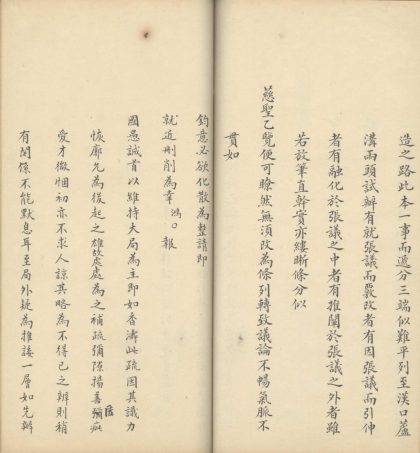 造之路此本一事而遞分三端似難平列至漢口蘆
溝兩頭試辦有就張議而覈改者有因張議而引伸
者有融化於張議之中者有推闡於張議之外者雖
若放筆直幹實亦縷晰條分似
慈聖乙覽便可瞭然無須改為條列轉致議論不暢氣脈不
貫如
鈞意必欲化散為整請即
就近刪削為幸鴻○報
國愚誠首以維持大局為主即如香濤此疏因其識力
恢廓允為後起之雄故處處為之補疏彌隙揚善彌
愛才微悃初亦不求人諒其略為不得已之辨則稍
有關係不能默息耳至局外疑為推諉一層如先辦